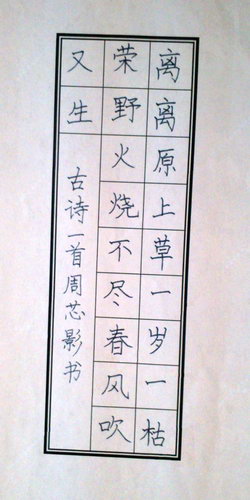 离离原上草一岁一枯
荣野火烧不尽春风吹
又生
古诗一首周芯影书